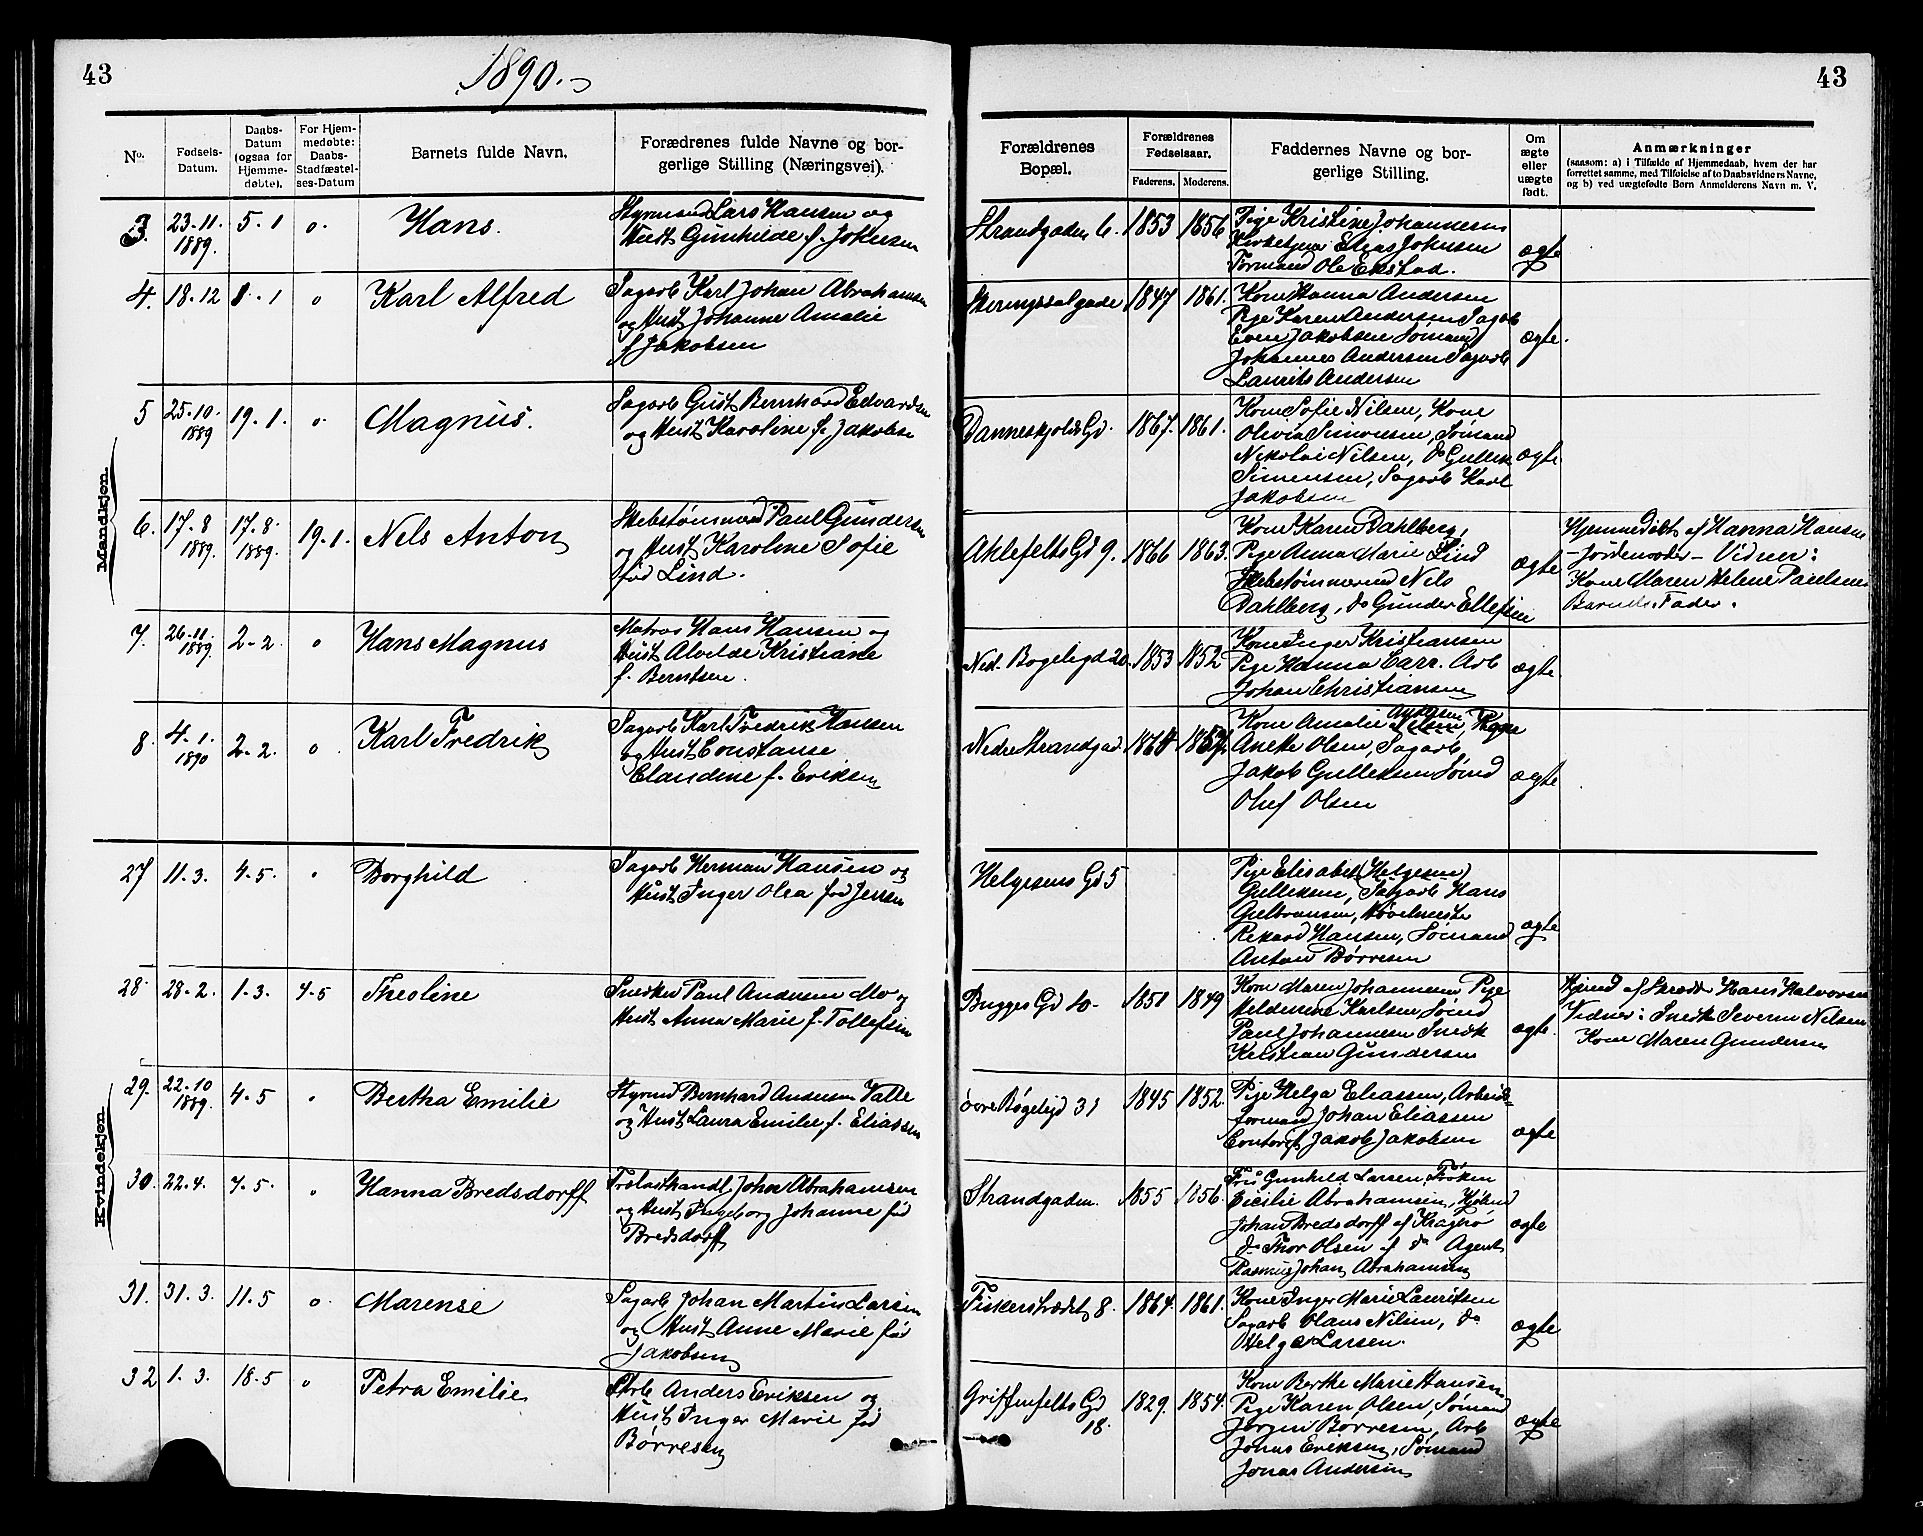 43
1890.
43
No.
Fødsels-Datum.
Daabs-Datum (ogsaa for Hjemmedøbte).
For Hjemmedøbte: Daabs-Stadfæstelses-Datum
Barnets fulde Navn.
Forædrenes fulde Navne og borgerlige Stilling (Næringsvei).
Forældrenes Bopæl.
Forældrenes Fødselsaar.
Faderens.
Moderens.
Faddernes Navne og borgerlige Stilling.
Om ægte eller uægte født.
Anmærkninger
(saasom: a) i Tilfælde af Hjemmedaab, hvem der har
forrettet samme, med Tilføielse af to Daabsvidners Navne,
og b) ved uægtefødte Børn Anmelderens Navn m. V.
Mandkjøn.
3. 23-11. 1889. 5-1 o. Hans.
Styrmand Lars Hansen og
Hust Gunhilde f. Johnsen
Strandgaden 6. 1853 1856
Pige Kristine Johannesen
Kirketjener Elias Johnsen
Formand Ole Ekstad.
ægte
4. 18-12 1-1 o Karl Alfred
Sagarb Karl Johan Abrahamsen
og Hust Johanne Amalie
f Jakobsen
Skeringssalgade 1847 1861.
Kone Hanna Andersen
Pige Karen Andersen Sagarb
Even Jakobsen Sømand
Johannes Andersen Sagarb
Laurits Andersen
ægte.
5 25-10- 1889 19-1. o. Magnus.
Sagarb Gust Bernhard Edvardsen
og Hust Karoline f. Jakobse
Danneskjolds Gd. 1867. 1861.
Kone Sofie Nilsen, Kone
Olivia Simonsen, Sømand
Nikolai Nilsen, do Gullik
Simensen, Sagarb Karl
Jakobsen
ægte
6. 17-8 1889. 17-8- 1889. 19-1. Nels Anton
Skibstømmermd Paul Gundersen
og Hust Karoline Sofie
fød Lind.
Ahlefelts Gd 9. 1866 1863.
Kone Karen Dahlberg,
Pige Anna Marie Lind
Skibstømmermd Nils
Dahlberg, do Gunder Ellefsen
ægte
Hjemmedøbt af Hanna Hansen
- Jordemoder - Vidner:
Kone Maren Helene Paulsen
Barnets Fader.
7. 26-11- 1889. 2-2. o Hans Magnus
Matros Hans Hansen og
Hust Alvilde Kristiane
f. Berntsen.
Ned. Bøgeligd 20. 1853 1852
Kone Inger Kristiansen
Pige Hanna Carr. Arb
Johan Christiansen
ægte.
8. 4-1. 1890 2-2. o Karl Fredrik
Sagarb Karl Fredrik Hansen
og Hust Constanse
Claudine f. Eriksen
Nedre Strandgad 1867.
Kone Amalie
Aneke Olsen, Sagarb
Jakob Gulliksen Sømd
Oluf Olsen
ægte
Kvindekjøn.
27 11-3. 4-5. Borghild
Sagarb Herman Hansen og
Hust Inger Olea fød Jensen
Helgesens Gd 5
Pige Elisabeth (Helgesen)
Gulliksen, Sagarb Hans
Gulbransen, Høvelmester
Rikard Hansen, Sømand
Anton Børresen
ægte
28- 28-2. 1-3. 4-5 Theoline
Snedker Paul Andersen Mo og
Hust Anna Marie f. Tollefsen
Bugges Gd 10- 1851 1849
Kone Maren Johannesen Pige
Karlsen Sømd
Paul Johannesen Snedk
Kristian Gundersen
ægte.
Hjemd af Skrædder Hans Halvorsen
Vidner: Snedk Severin Nilsen
Kone Maren Gundersen
29. 22-10 1889. 4-5 Bertha Emilie
Styrmd Bernhard Andersen Valle
og Hust Laura Emilie f. Eliassen
øvre Bøgeligd 31 1845 1852
Pige Helga Eliassen, Arbeids-
formand Johan Eliassen
Contorist Jakob Jakobsen
ægte
30. 22-4. 4-5. Hanna Bredsdorff
Trælasthandl. Johan Abrahamsen
og Hust Ingeborg Johanne fød
Bredsdorff
Strandgaden. 1855 1856.
Fru Gunhild Larsen, Frøken
Cicilie Abrahamsen, Kjøbmd
Johan Bredsdorff af Kragerø
do Thor Olsen af do Agent
Rasmus Johan Abrahamsen
ægte
31. 31-3. 11-5 o. Marense
Sagarb Johan Martin Larsen
og Hust Anne Marie fød
Jakobsen
Fiskerstrædet 8. 1864. 1861.
Kone Inger Marie Lauritsen
Sagarb Olaus Nilsen, do
Helge Larsen.
ægte
32 1-3. 18-5 o Petra Emilie
Anders Eriksen og
Hust Inger Marie fød
Børresen
Griffenfelts Gd
18. 1829. 1854.
Kone Berthe Marie Hansen
Pige Karen Olsen, Sømand
Jørgen Børresen, Arb
Jonas Eriksen, Sømand
Jonas Andersen
ægte